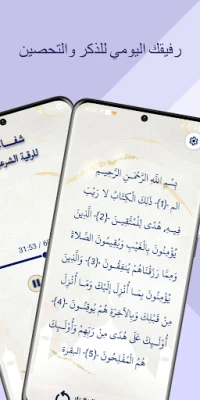 رفيقك اليومي للذكر والتحصين
شفاء
للرقية الشرعية
31:53 / 6
بِسْمِ اللَّهِ الرَّحْمَٰنِ الرَّحِيمِ
الم ﴿1﴾ ذَٰلِكَ الْكِتَابُ لَا رَيْبَ
فِيهِ هُدًى لِّلْمُتَّقِينَ ﴿2﴾ الَّذِينَ
يُؤْمِنُونَ بِالْغَيْبِ وَيُقِيمُونَ الصَّلَاةَ
وَمِمَّا رَزَقْنَاهُمْ يُنفِقُونَ ﴿3﴾ وَالَّذِينَ
يُؤْمِنُونَ بِمَا أُنزِلَ إِلَيْكَ وَمَا أُنزِلَ
مِن قَبْلِكَ وَبِالْآخِرَةِ هُمْ يُوقِنُونَ ﴿4﴾
أُولَٰئِكَ عَلَىٰ هُدًى مِّن رَّبِّهِمْ وَأُولَٰئِكَ
هُمُ الْمُفْلِحُونَ ﴿5﴾ البقرة